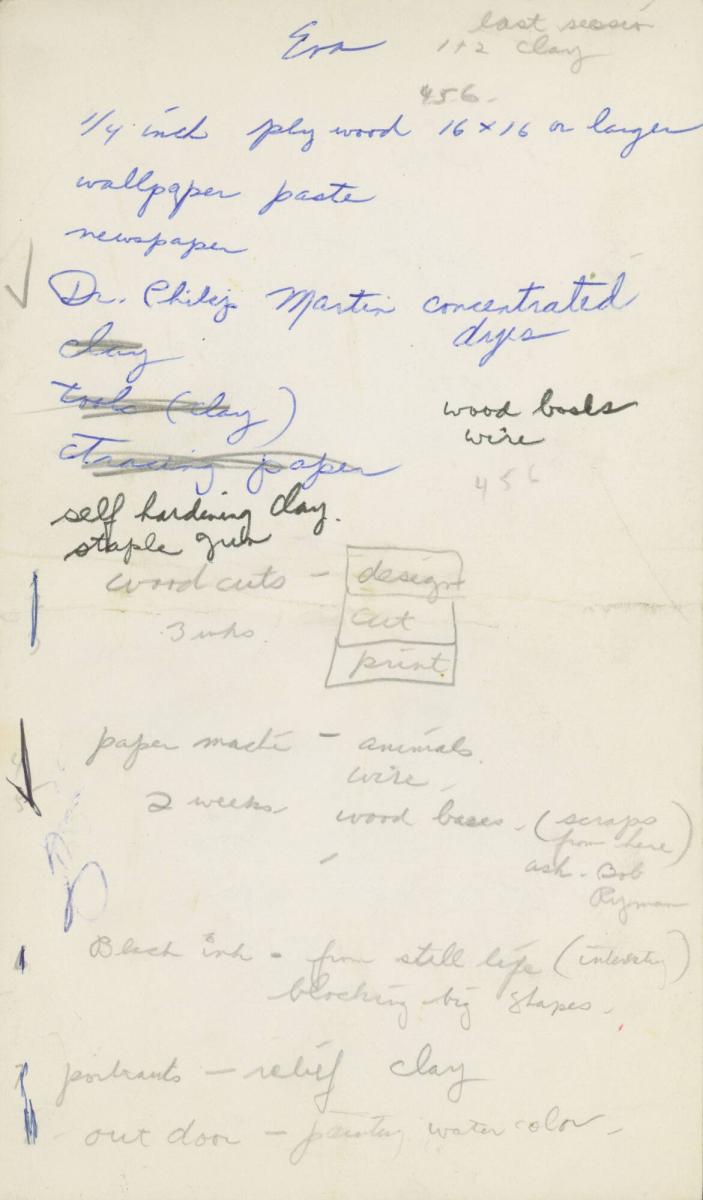 Eva
last session
1+2 clay
456-
1/4 inch plywood 16x16 or larger
wallpaper paste
newspaper
Dr. Philip Martin concentrated
dyes
clay
tools (clay)
tracing paper
wood bases
wire
456
self hardening clay.
staple gun
wood cuts - design
cut
3 wks
print
paper maché - animals.
wire -
2 weeks - wood bases - (scraps
from here)
ask - Bob
Ryman
Black ink - from still life (interesting)
blocking big shapes -
portraits - relief clay
out door - painting water color -